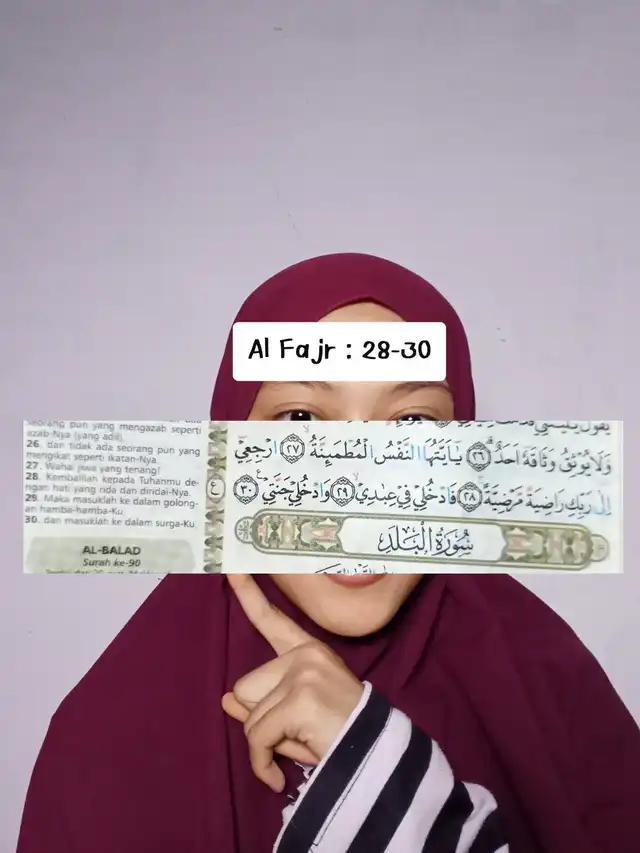 Al Fajr : 28-30
seorang pun yang mengazab seperti
azab-Nya (yang adil),
26. dan tidak ada seorang pun yang
mengikat seperti ikatan-Nya.
27. Wahai jiwa yang tenang!
28. Kembalilah kepada Tuhanmu de-
ngan hati yang rida dan diridai-Nya.
29. Maka masuklah ke dalam golong-
an hamba-hamba-Ku,
30. dan masuklah ke dalam surga-Ku.
AL-BALAD
Surah ke-90
ع
وَلَا يُوْثِقُ وَثَاقَهٗٓ اَحَدٌ ٢٦ يٰٓاَيَّتُهَا النَّفْسُ الْمُطْمَىِٕنَّةُ ٢٧ ارْجِعِيْٓ
اِلٰى رَبِّكِ رَاضِيَةً مَّرْضِيَّةً ٢٨ فَادْخُلِيْ فِيْ عِبٰدِيْ ٢٩ وَادْخُلِيْ جَنَّتِيْ ٣٠
سُوْرَةُ الْبَلَدِ